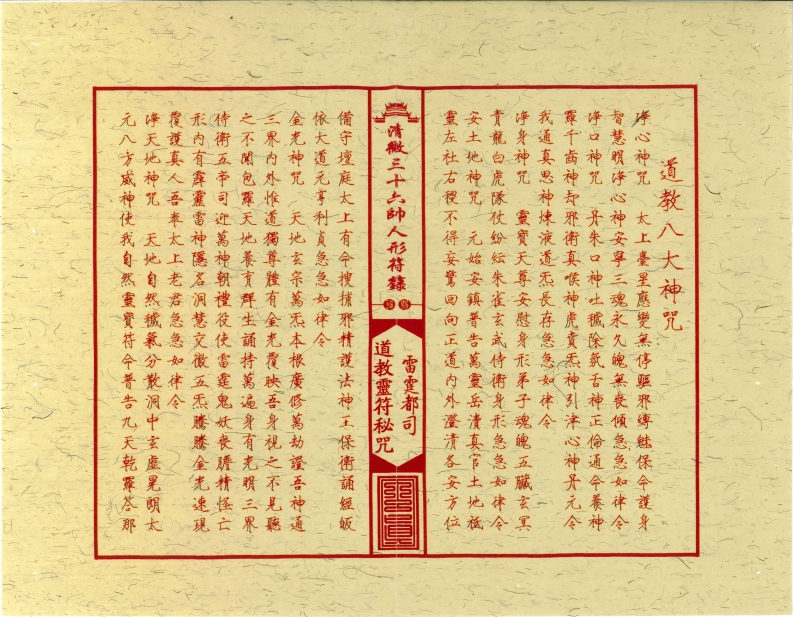 道教八大神咒
淨心神咒　太上臺星應變無停驅邪縛魅保命護身
智慧明淨心神安寧三魂永久魄無喪傾急急如律令
淨口神咒　丹朱口神吐穢除氛舌神正倫通命養神
羅千齒神却邪衛真喉神虎賁炁神引津心神丹元令
我通真思神煉液道炁長存急急如律令
淨身神咒　靈寶天尊安慰身形弟子魂魄五臟玄冥
青龍白虎隊仗紛紜朱雀玄武侍衛身形急急如律令
安土地神咒　元始安鎮普告萬靈岳瀆真官土地祇
靈左社右稷不得妄驚回向正道內外澄清各安方位
清微三十六帥人形符錄
雷霆都司
道教靈符秘咒
備守壇庭太上有命搜捕邪精護法神王保衛誦經皈
依大道元亨利貞急急如律令
金光神咒　天地玄宗萬炁本根廣修萬劫證吾神通
三界內外惟道獨尊體有金光覆映吾身視之不見聽
之不聞包羅天地養育群生誦持萬遍身有光明三界
侍衛五帝司迎萬神朝禮役使雷霆鬼妖喪膽精怪亡
形內有霹靂雷神隱名洞慧交徹五炁騰騰金光速現
覆護真人吾奉太上老君急急如律令
淨天地神咒　天地自然穢氣分散洞中玄虛晃朗太
元八方威神使我自然靈寶符命普告九天乾羅答那